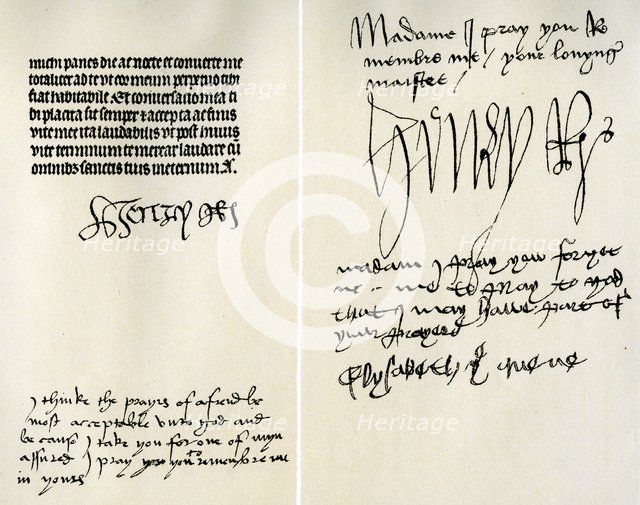 michi panes die ac nocte et converte me
totaliter ad te ut cor meum perpetuo tibi
fiat habitabile Et conversacio mea ti
di placita sit semper & accepta ac finis
vite mee ita laudabilis ut post huius
vite terminum te merear laudare cū
omnibus sanctis tuis in eternum A.
Henry R
I thinke the prayrs of a frend be
most acceptable unto god and
be cause I take you for one of myn
assured I pray you remembre me
in yours
Madame I pray you Re
membre me your louyng
maister
Henry R
madam I pray you forget
not me to pray to god
that I may have part of
your prayers
Elysabeth ye quene
Heritage
Heritage
Heritage
Heritage
Heritage
Heritage